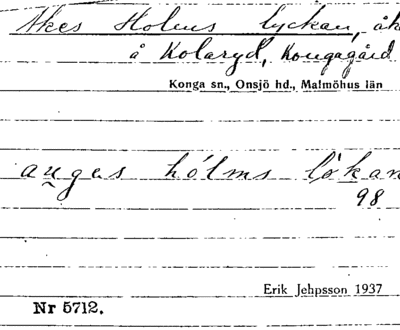 Åkes Holms lyckan, åk
å Kolaryd, Kongagård
Konga sn., Onsjö hd., Malmöhus län
auges hólms lókan
98
Erik Jehpsson 1937
Nr 5712.